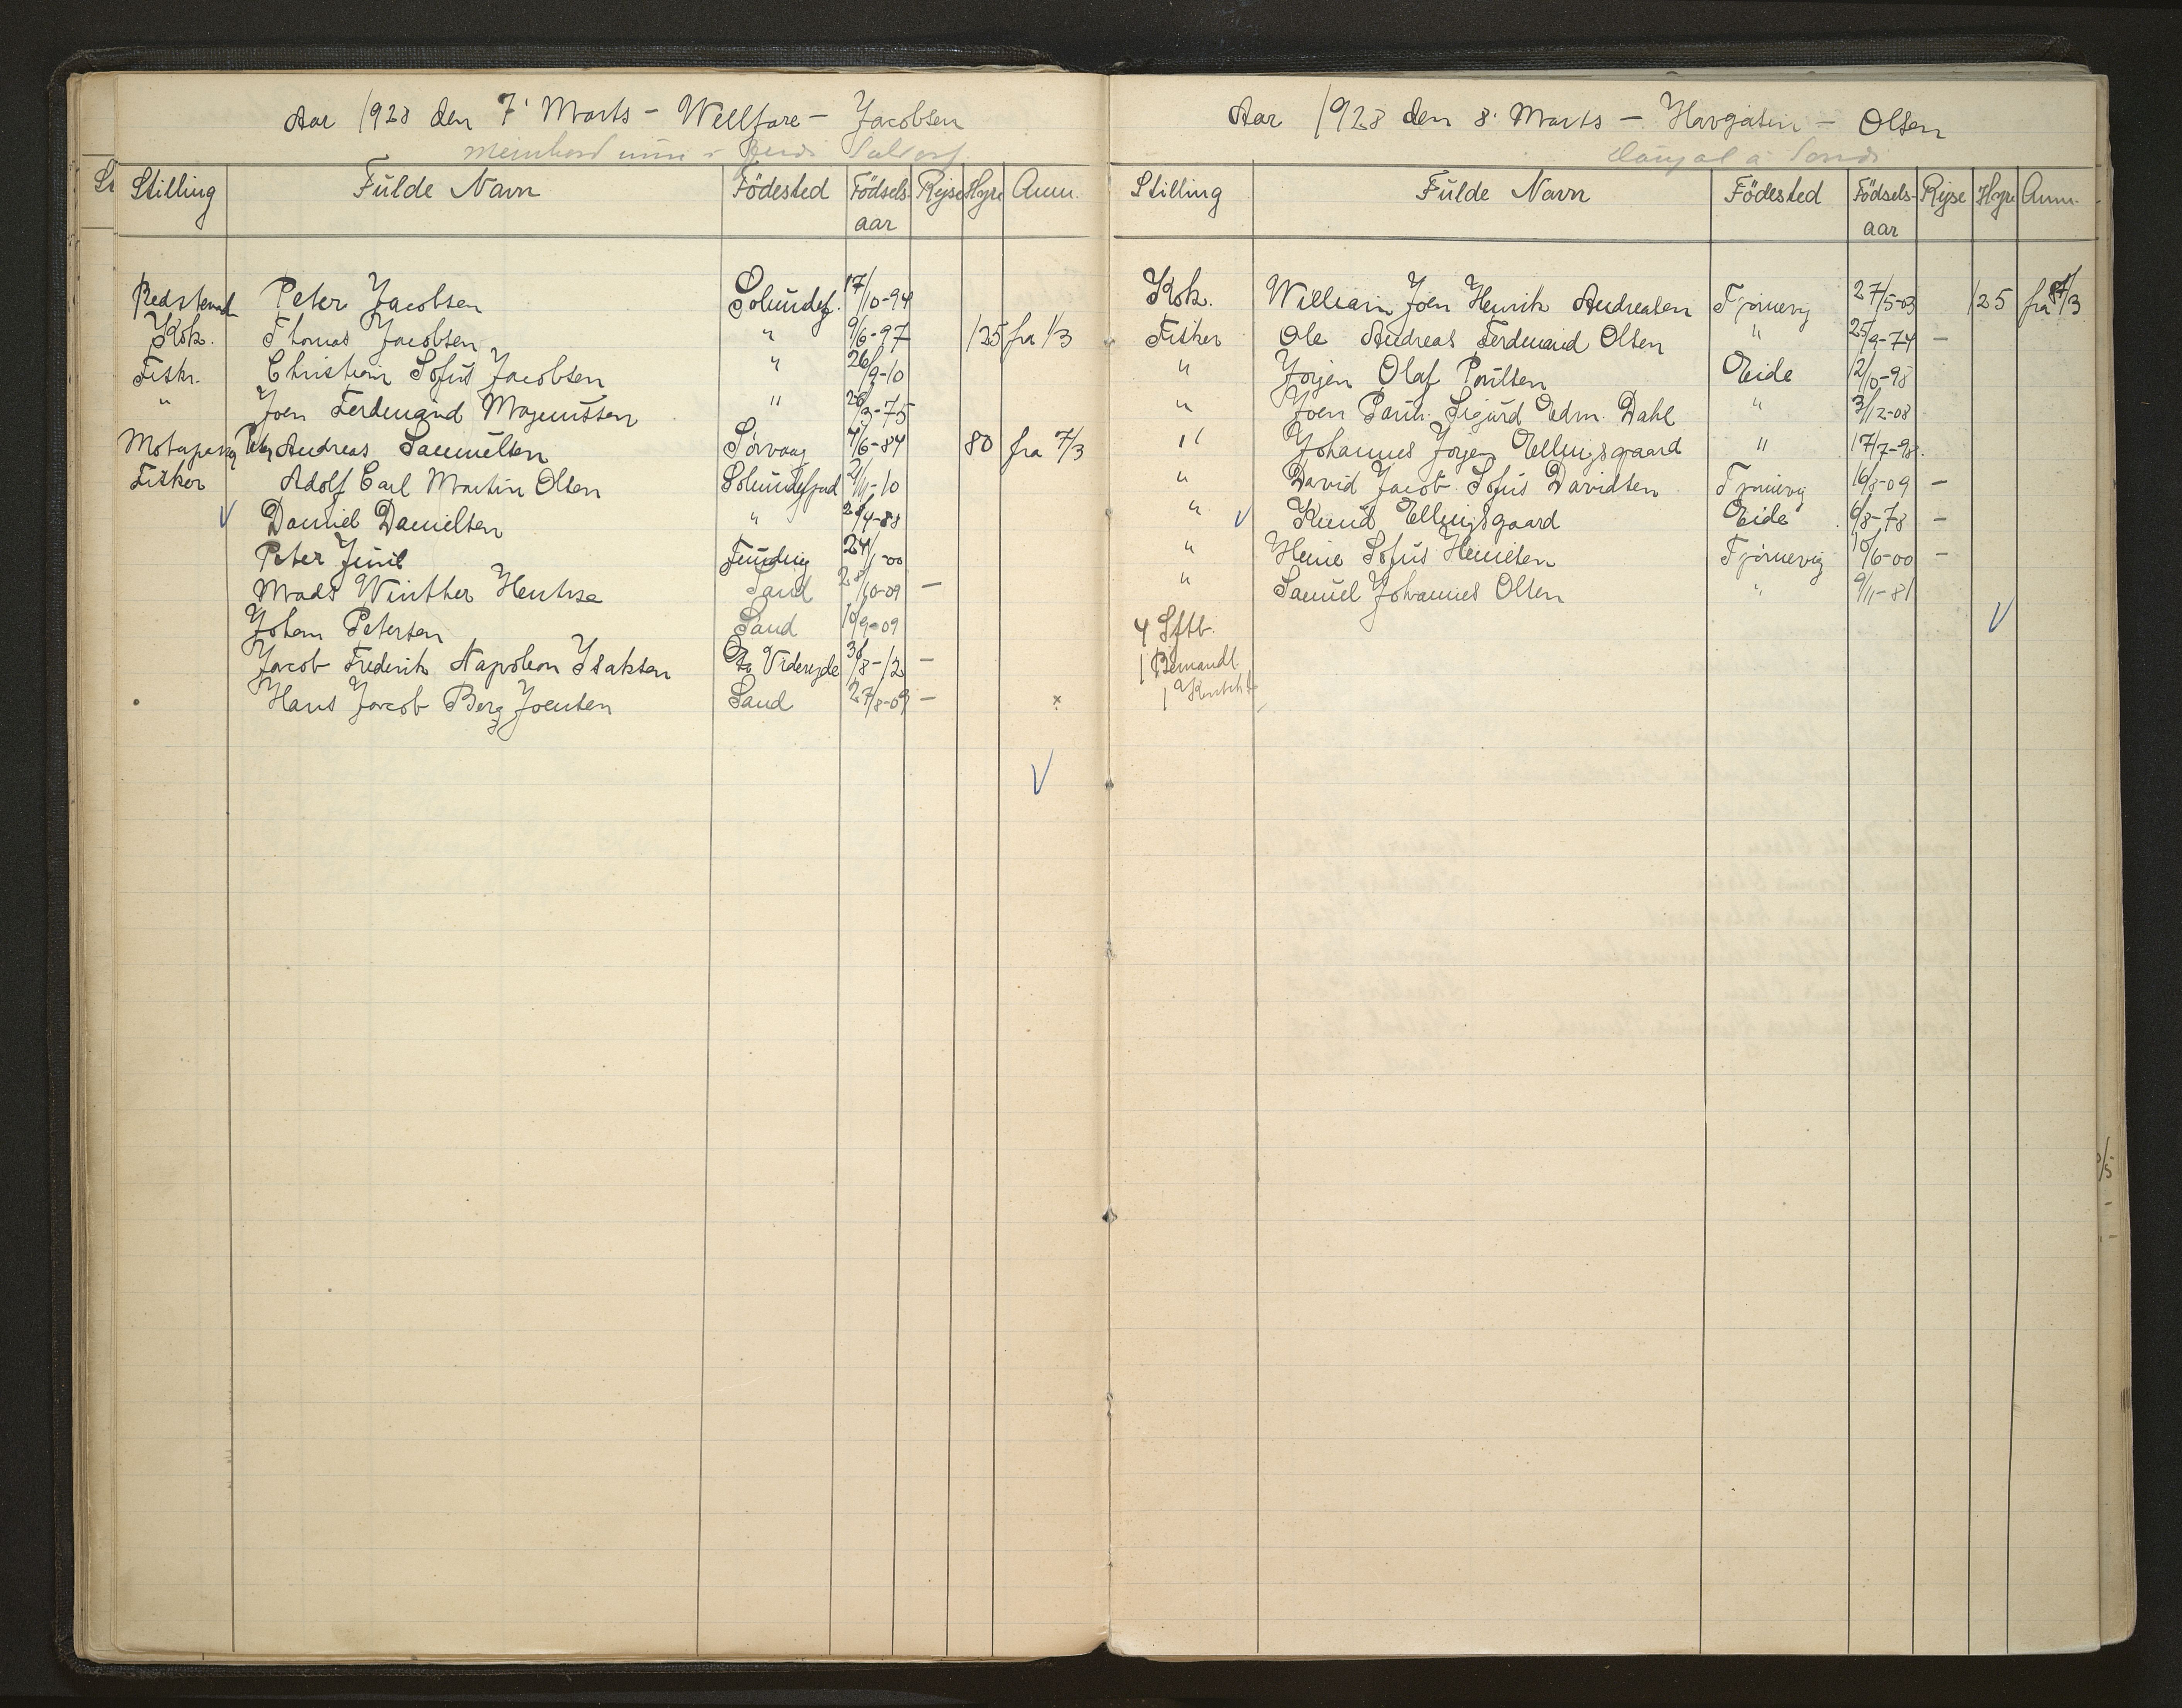 Aar 1928 den 7' Marts - Wellfare - Jacobsen
Stilling Fulde Navn Födested Födsels- aar Rejse Hyre Anm.
Bedstemd Peter Jacobsen Solmundef. 17/10-94
Kok. Thomas Jacobsen " 9/6-97 125 fra 1/3
Fiskr. Christian Sofus Jacobsen " 26/9-10
" Joen Ferdinand Magnussen " 26/3-75
Motorpasser Andreas Samuelsen Sørvaag 4/6-84 80 fra 7/3
Fisker Adolf Carl Martin Olsen Solmundefjord 2/11-10
V Daniel Danielsen " 28/4-88
Peter Juul Funding 24/1-00
Mads Winther Hentze Sand 28/10-09 -
Johan Petersen Sand 10/9-09
Jacob Frederik Napoleon Isaksen Viderejde 31/8-12 -
Hans Jacob Berg Joensen Sand 27/8-09 - x
V
Aar 1928 den 8' Marts - Havgasin - Olsen
Stilling Fulde Navn Födested Födsels- aar Rejse Hyre Anm.
Kok. William Joen Henrik Andreasen Tjörnevig 27/5-03 125 fra 8/3
Fisker Ole Andreas Ferdinand Olsen " 25/9-74 -
" Jorgen Olaf Poulsen Eide 12/10-98
" Joen Poul Sigurd Edm. Dahl " 3/12-08
" Johannes Jorgen Ellingsgaard " 17/7-98.
" David Jacob Sofus Davidsen Tjörnevig 16/8-09 -
" V Knud Ellingsgaard Eide 6/8-78 -
" Heine Sofus Heinesen Tjörnevig 10/6-00 -
" Samuel Johannes Olsen " 9/11-81
4 Sftb. V
1 Bemandl.
1